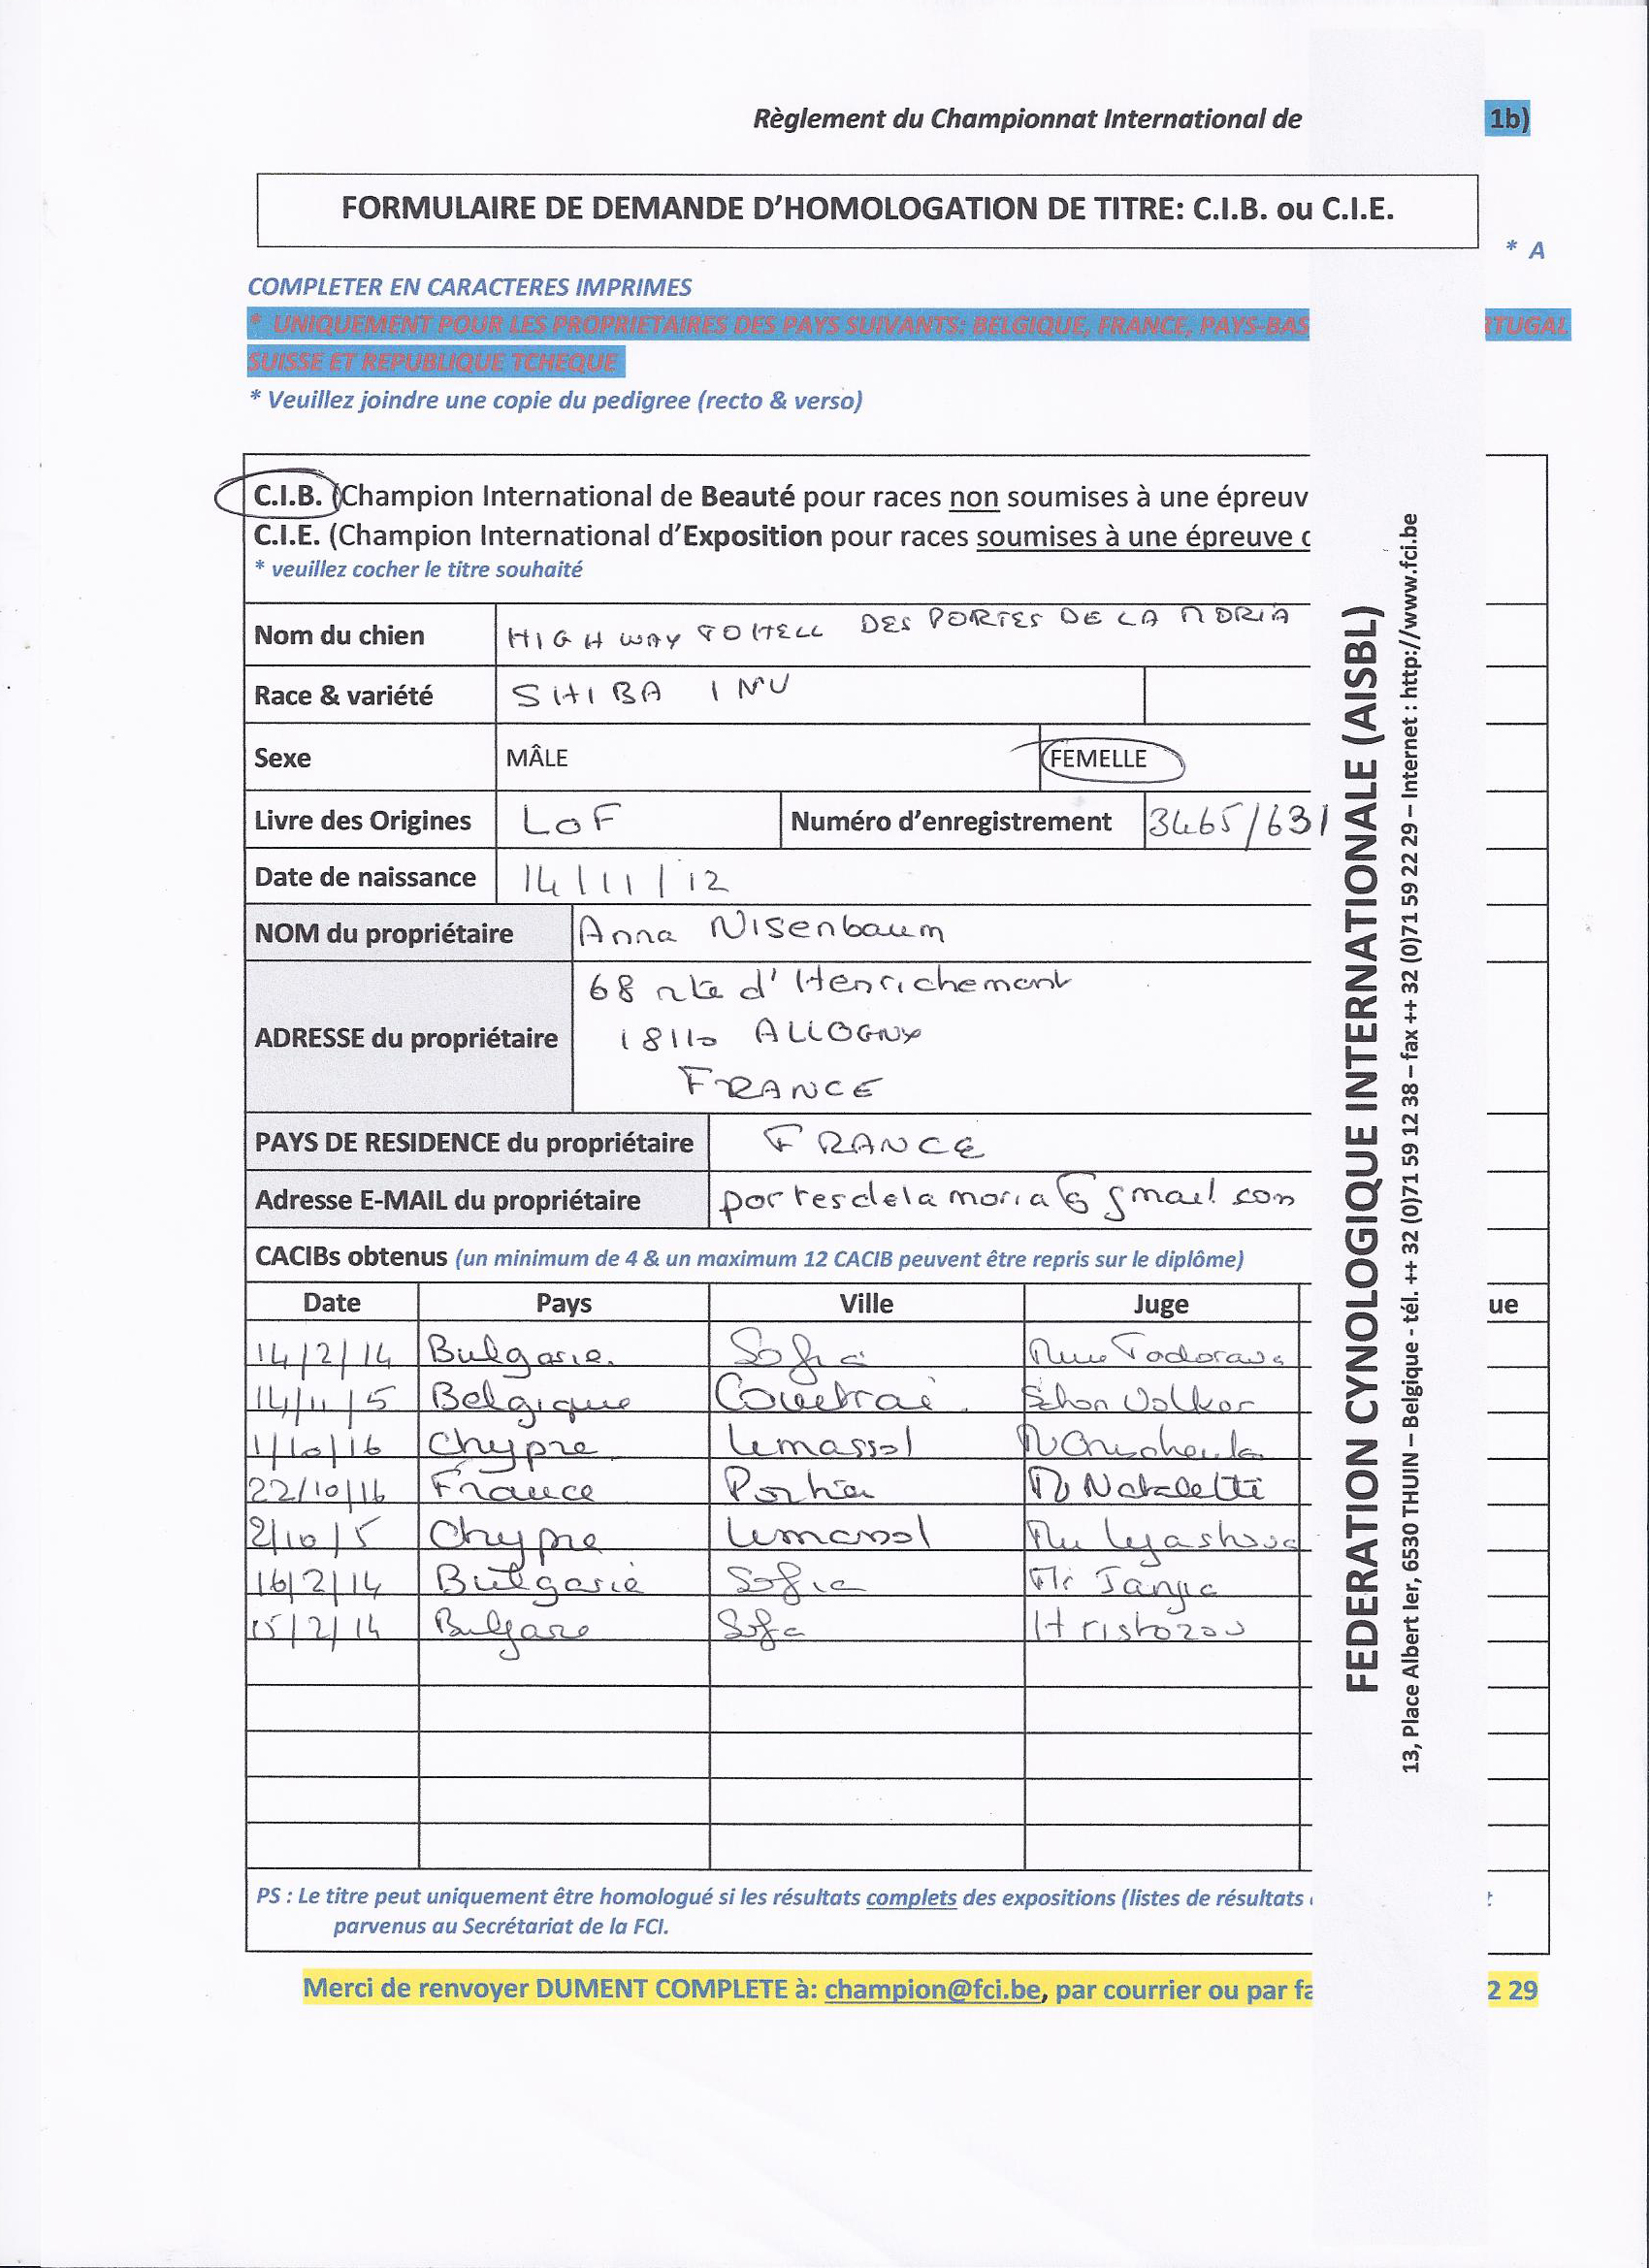 Règlement du Championnat International de 1b)
FORMULAIRE DE DEMANDE D'HOMOLOGATION DE TITRE: C.I.B. ou C.I.E.
* A
COMPLETER EN CARACTERES IMPRIMES
* UNIQUEMENT POUR LES PROPRIETAIRES DES PAYS SUIVANTS: BELGIQUE, FRANCE, PAYS-BAS RTUGAL
SUISSE ET REPUBLIQUE TCHEQUE
* Veuillez joindre une copie du pedigree (recto & verso)
C.I.B. (Champion International de Beauté pour races non soumises à une épreuv
C.I.E. (Champion International d'Exposition pour races soumises à une épreuve
* veuillez cocher le titre souhaité
Nom du chien HIGHWAY TO HELL DES PORTES DE LA MORIA
Race & variété SHIBA INU
Sexe MÂLE FEMELLE
Livre des Origines LOF Numéro d'enregistrement 3465/631
Date de naissance 14/11/12
NOM du propriétaire Anna Nisenbaum
ADRESSE du propriétaire 68 rte d'Henrichemont
18110 ALLOGNY
FRANCE
PAYS DE RESIDENCE du propriétaire FRANCE
Adresse E-MAIL du propriétaire portesdelamoria@gmail.com
CACIBs obtenus (un minimum de 4 & un maximum 12 CACIB peuvent être repris sur le diplôme)
Date Pays Ville Juge ue
14/2/14 Bulgarie Sofia Mme Todorova
14/11/5 Belgique Courtrai Volker
1/10/16 Chypre Lemassol
22/10/16 France Poitier Nataletti
2/10/5 Chypre Lemassol
16/2/14 Bulgarie Sofia
15/2/14 Bulgarie Sofia Hristozov
PS : Le titre peut uniquement être homologué si les résultats complets des expositions (listes de résultats t
parvenus au Secrétariat de la FCI.
Merci de renvoyer DUMENT COMPLETE à: champion@fci.be, par courrier ou par fa 2 29
FEDERATION CYNOLOGIQUE INTERNATIONALE (AISBL)
13, Place Albert Ier, 6530 THUIN – Belgique - tél. ++ 32 (0)71 59 12 38 – fax ++ 32 (0)71 59 22 29 – Internet : http://www.fci.be